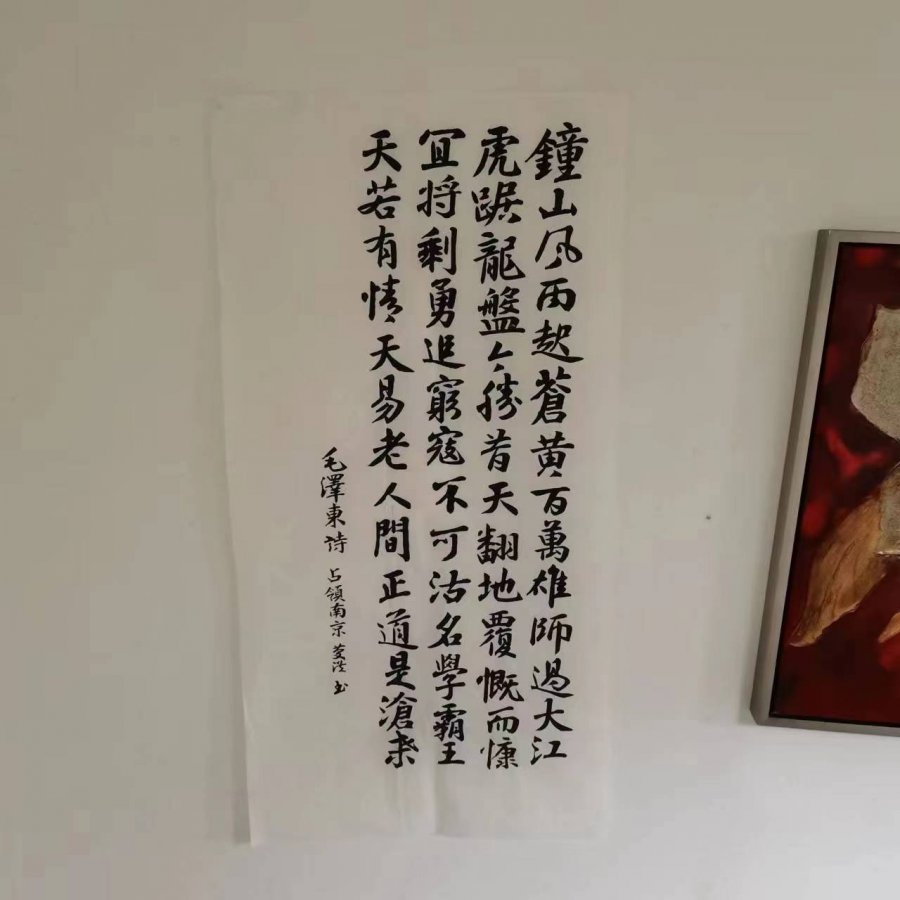 鐘山风雨起蒼黄百萬雄師過大江
虎踞龍盤今勝昔天翻地覆慨而慷
冝将剩勇追窮寇不可沽名學霸王
天若有情天易老人間正道是滄桒
毛澤東诗 占領南京 书